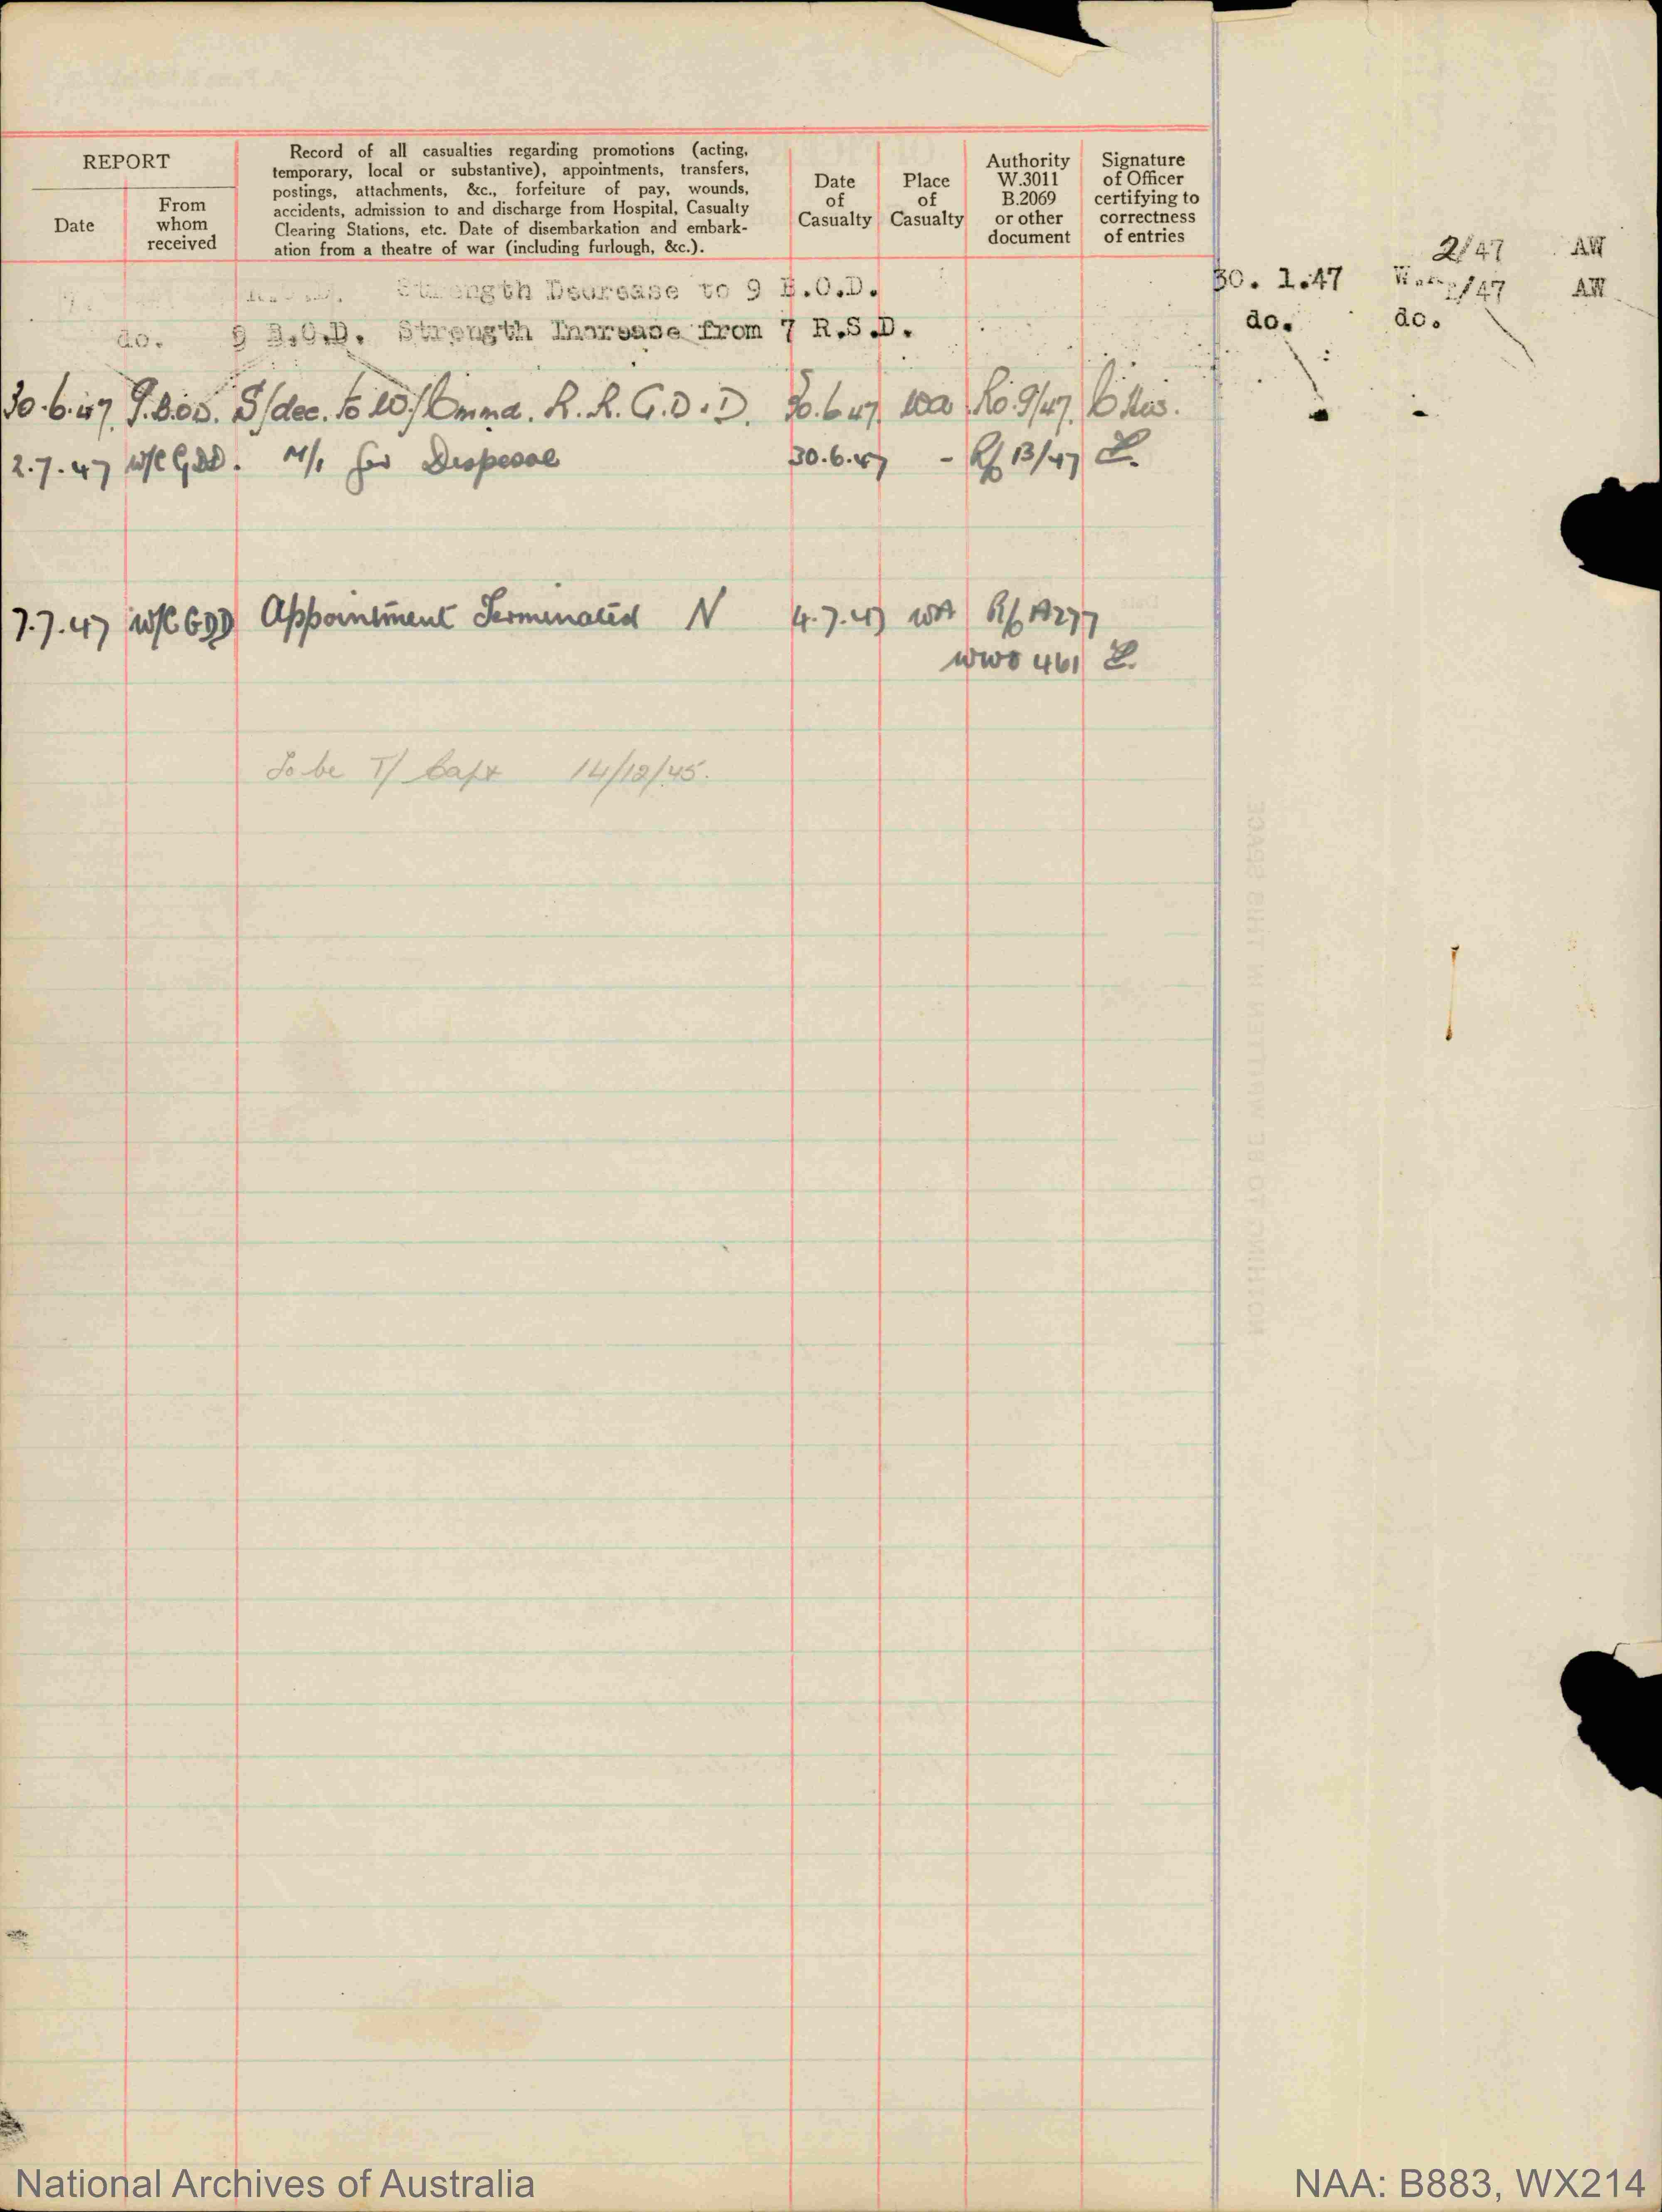 REPORT
Date
From
whom
received
Record of all casualties regarding promotions (acting,
temporary, local or substantive), appointments, transfers,
postings, attachments, &c., forfeiture of pay, wounds,
accidents, admission to and discharge from Hospital, Casualty
Clearing Stations, etc. Date of disembarkation and embark-
ation from a theatre of war (including furlough, &c.).
Date
of
Casualty
Place
of
Casualty
Authority
W.3011
B.2069
or other
document
Signature
of Officer
certifying to
correctness
of entries
2/47 AW
Strength Decrease to 9 B.O.D. 30. 1.47 2/47 AW
do. 9 B.O.D. Strength Increase from 7 R.S.D. do. do.
30.6.47 9.B.O.D. S/dec. to W/Comnd. R.R.G.D.D. 30.6.47 WA Ro.9/47
2.7.47 W/C GDD. M/I for Disposal 30.6.47 - 13/47
7.7.47 W/C GDD Appointment Terminated N 4.7.47 WA A277
WWO 461
To be T/ Capt 14/12/45.
NOTHING TO BE WRITTEN IN THIS SPACE
National Archives of Australia
NAA: B883, WX214